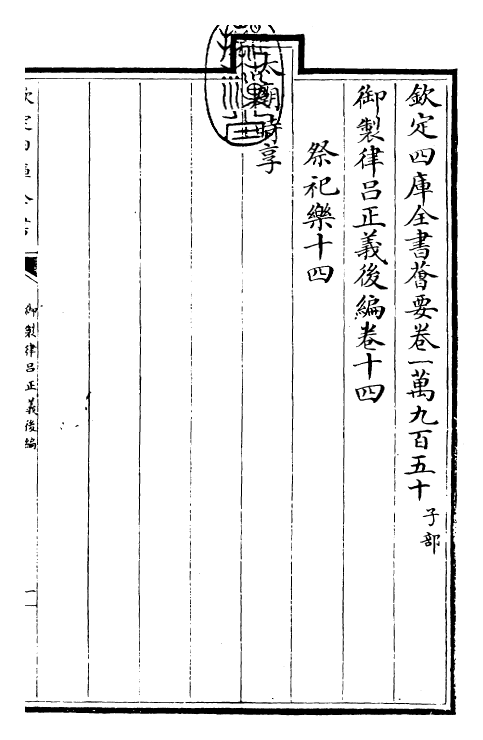 欽定四庫全書薈要卷一萬九百五十 子部
御製律呂正義後編卷十四
祭祀樂十四
太廟時享
欽定四庫全書
御製律呂正義後編
一